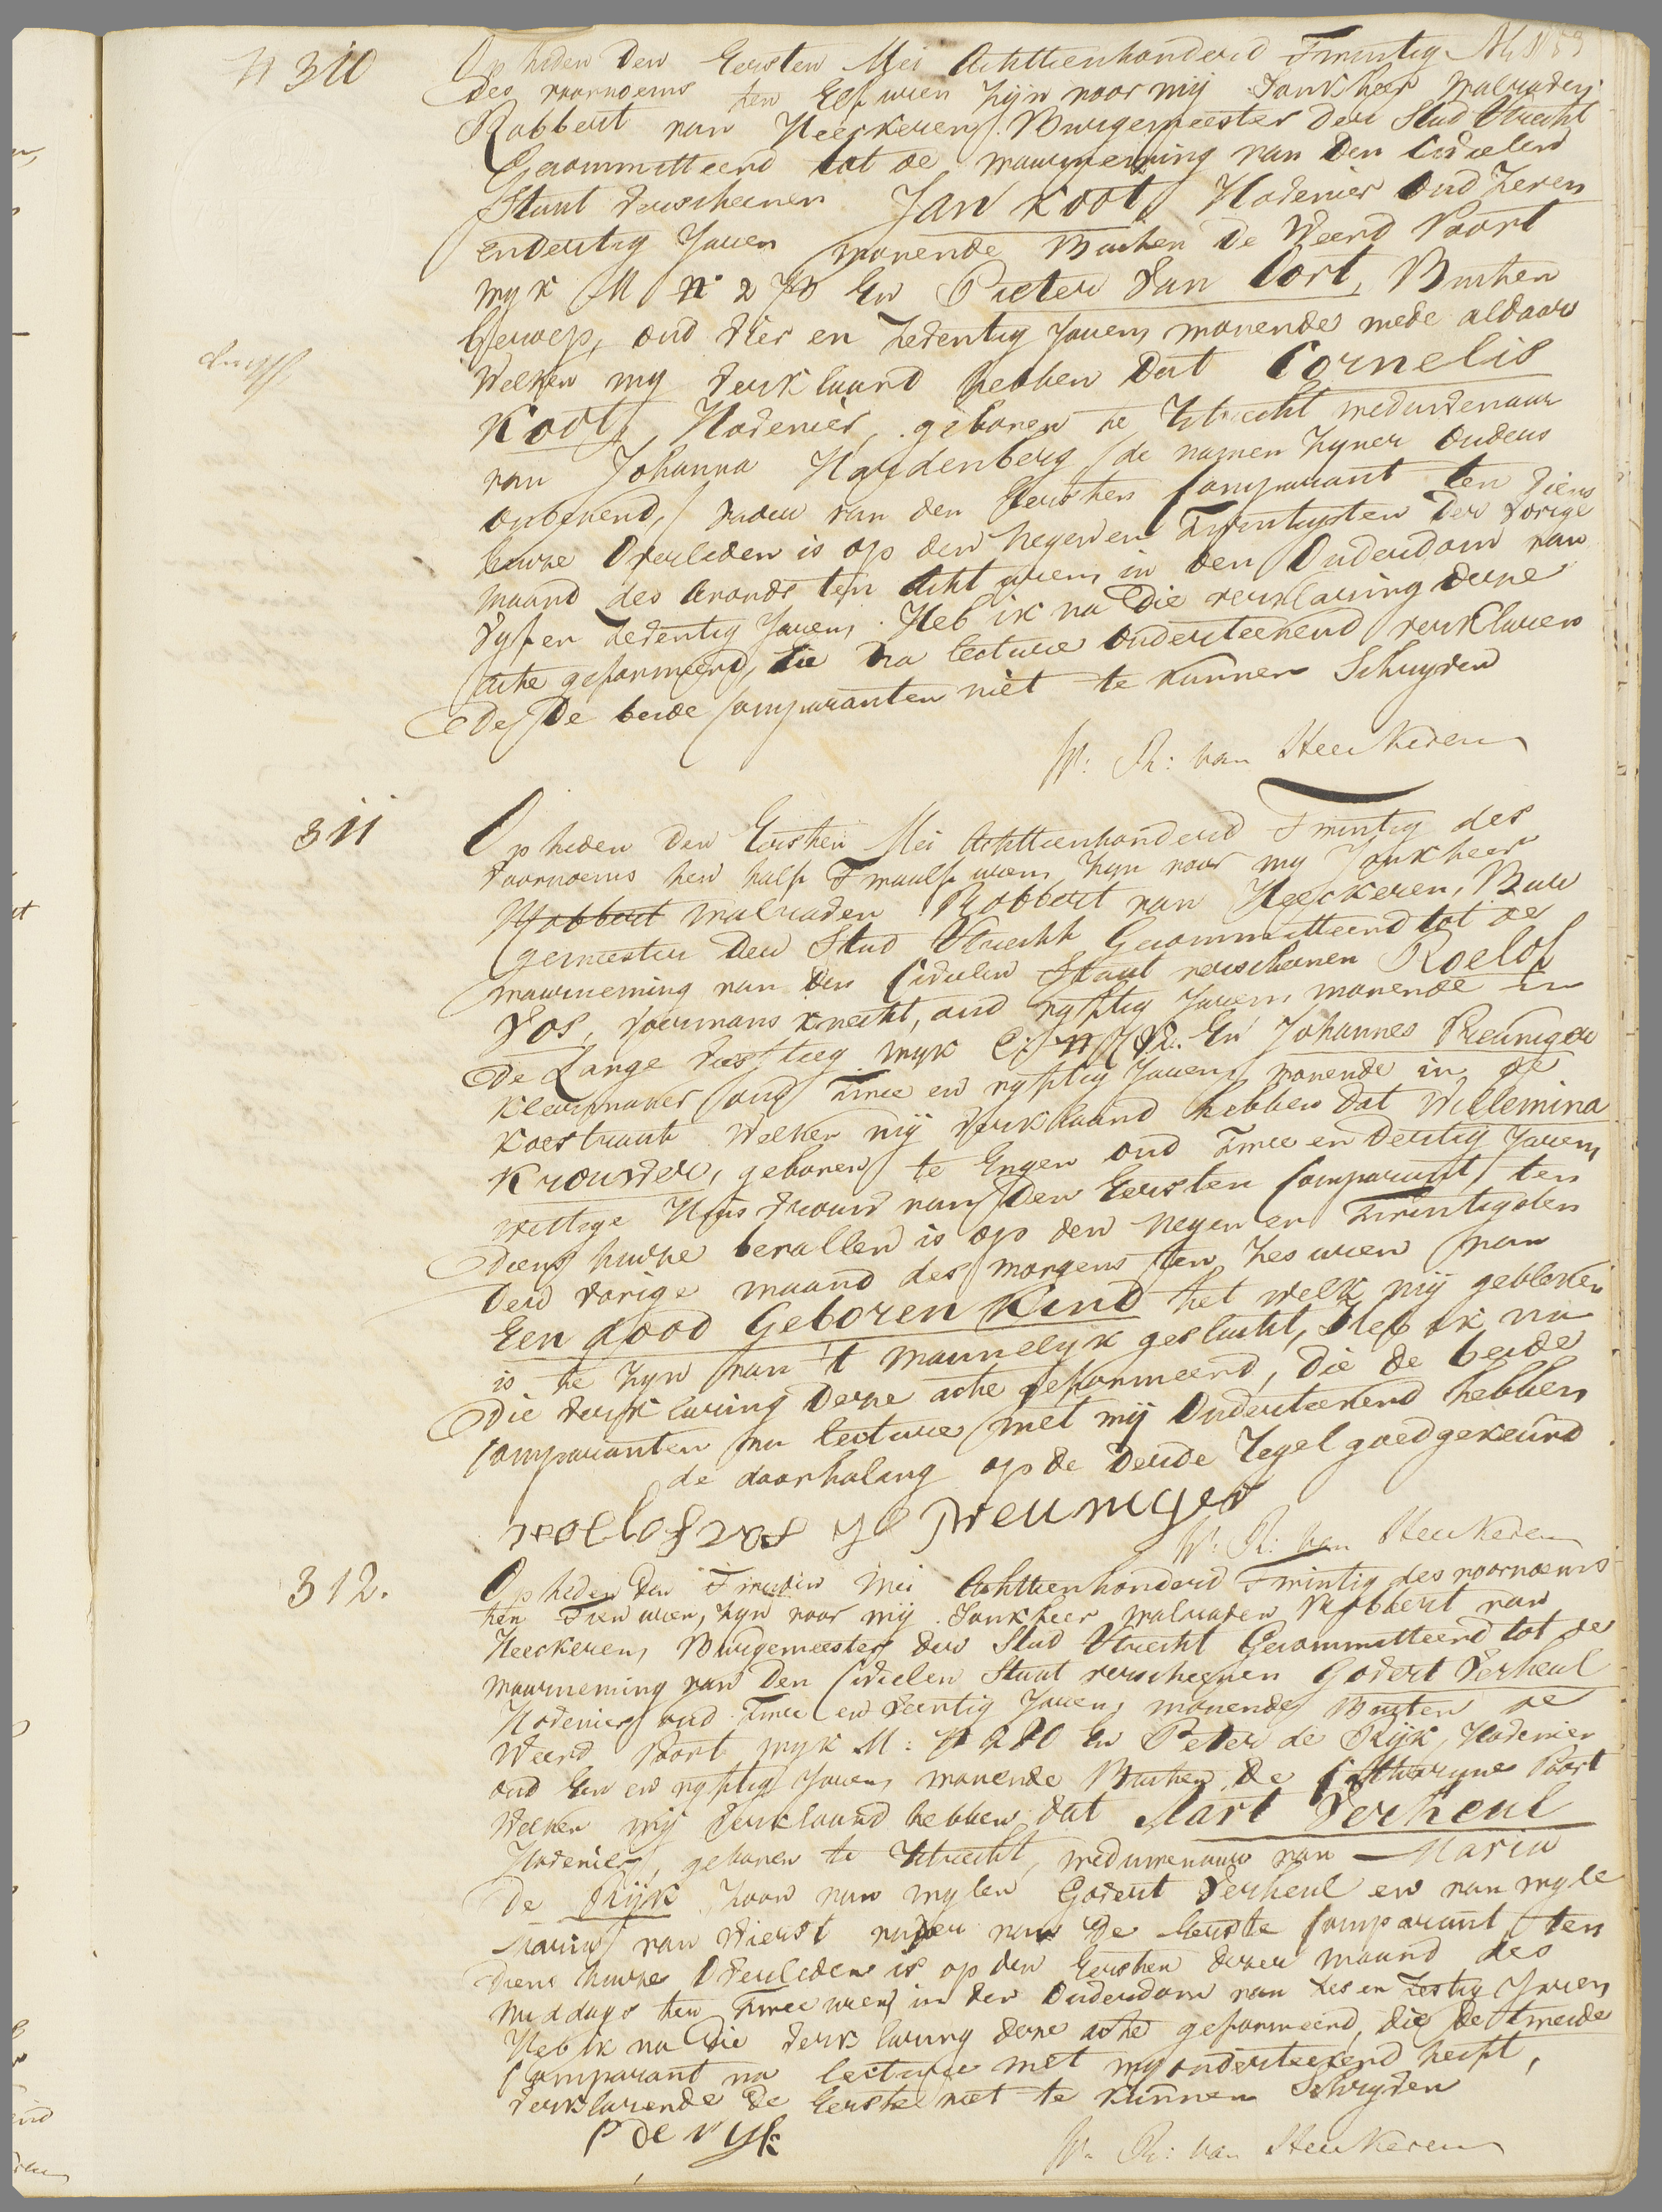 N 310
Op heden den Eersten Mei Achttienhonderd Twintig
des voornoens ten Elf uren zijn voor mij Jonkheer Walraden
Robbert van Heeckeren, Burgemeester der Stad Utrecht
Gecommitteerd tot de waarneming van den Civielen
Staat verscheenen Jan Koot, Hovenier Oud Zeven
en dertig Jaren wonende Buiten de Weerd Poort
wyk M N 270 En Pieter van Oort, Buiten
beroep, oud vier en Zeventig Jaren, wonende mede aldaar
Welken my verklaard hebben Dat Cornelis
Koot, Hovenier, geboren te Utrecht weduwenaar
van Johanna Hardenberg (de namen Zyner Ouders
onbekend,) vader van den Eersten Comparant ten Zien
huize Overleden is op den negen en Twintigsten Der vorige
maand des avonds ten Acht uren, in den Ouderdom van
Vyf en Zeventig Jaren. Heb ik na Die verklaring Deze
acte geformeerd, die na lecture Onderteekend verklaren
de De beide Comparanten niet te kunnen Schryven
W: R: van Heeckeren
311
Op heden Den Eersten Mei Achttienhonderd Twintig des
voornoens ten half Twaalf uren, zyn voor my Jonkheer
Robbert Walraden Robbert van Heeckeren, Bur
gemeester Der Stad Utrecht Gecommitteerd tot de
waarneming van den Civielen Staat verscheenen Roelof
Vos, voermans knecht, oud vyftig Jaren, wonende in
De Lange wyk En Johannes Preuniger
kleermaker oud Twee en vyftig Jaren, wonende in de
Koestraat Welken mij verklaard hebben Dat Willemina
Krouwer, geboren te Engen oud Twee en Dertig Jaren,
wettige Huisvrouw van Den Eersten Comparant, ten
Diens huize bevallen is op den negen en Twintigsten
Der vorige maand des morgens ten Zes uren van
Een dood Geboren Kind het welk mij gebleken
is te zyn van 't mannelyk geslacht, Heb ik na
Die verklaring Deze acte geformeerd, die de beide
Comparanten na lecture met mij Onderteekend hebben
de doorhaling op de Derde regel goedgekeurd
roelof vos J C Preuniger
W: R: van Heeckeren
312.
Op heden Den Tweeden Mei Achttienhonderd Twintig des voornoens
ten Tien uren, zyn voor mij Jonkheer Walraden Robbert van
Heeckeren, Burgemeester der Stad Utrecht Gecommitteerd tot de
waarneming van Den Civielen Staat verscheenen Godert Verheul
Hovenier oud Twee en veertig Jaren, wonende Buiten de
Weerd Poort wyk M: N 280 En Peter de Rijk, Hovenier
oud Een en vyftig Jaren, wonende Buiten de Catharyne Poort
Welken mij verklaard hebben dat Aart Verheul
Hovenier, geboren te Utrecht, weduwenaar van Maria
De Rijk, Zoon van wylen Godert Verheul en van wyle
Maria van Dierst vader van De Eerste Comparant, ten
Diens huize Overleden is op den Eersten dezer maand des
middags ten Twee uren, in den Ouderdom van Zes en Zestig Jaren,
Heb ik na Die verklaring deze acte geformeerd, die De Tweede
Comparant na lecture met my onderteekend heeft,
verklarende De Eerste niet te kunnen Schryven
P de ryk
W: R: van Heeckeren